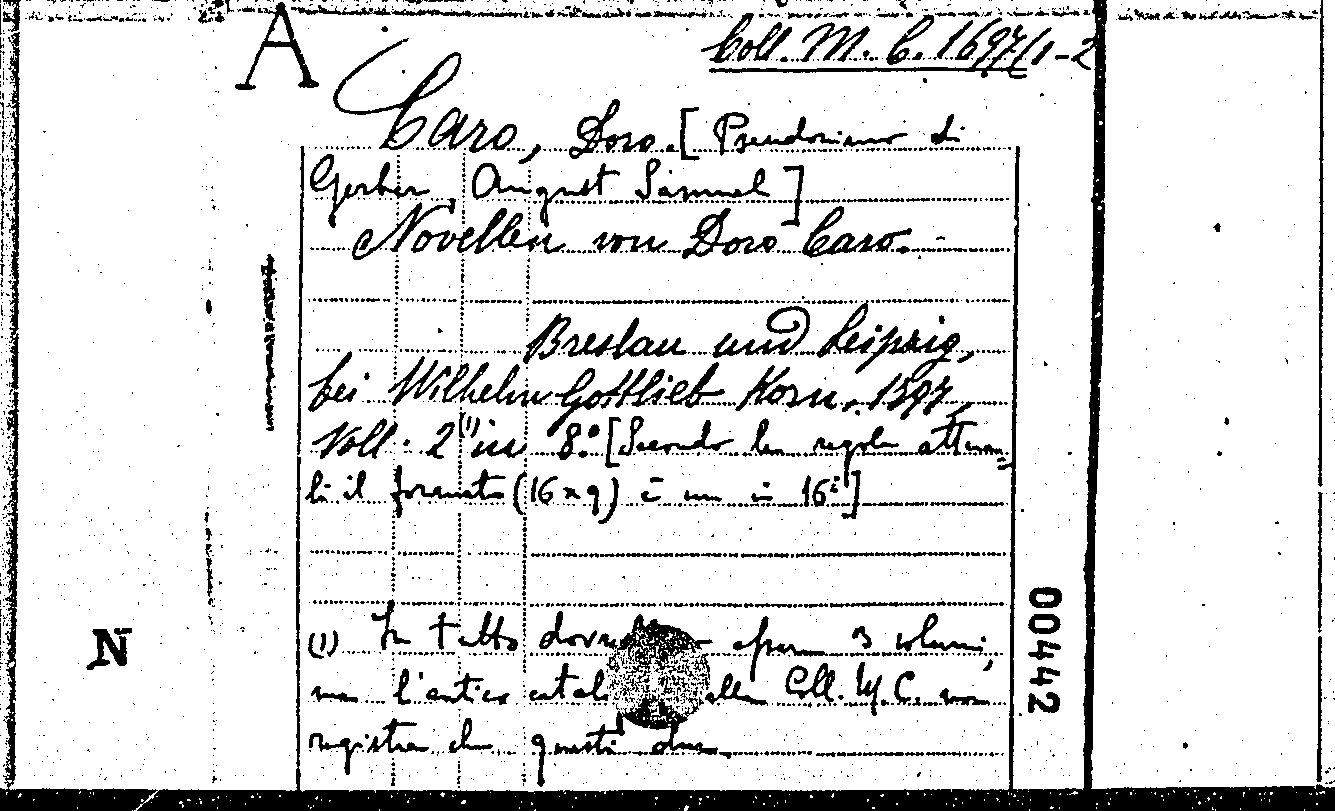 A
Coll. M. C. 1697/1-2
Caro, Doro. [Pseudonimo di
Gerber August Samuel]
Novellen von Doro Caro. -
Breslau und Leipzig,
bei Wilhelm Gottlieb Korn, 1797,
Voll. 2(1) in 8.° [Secondo le regole attua=
li il formato (16 x 9) è un in 16°]
N
00442
(1) In tutto essere 3 volumi,
ma l'antico della Coll. M. C. non
registra che questi due.